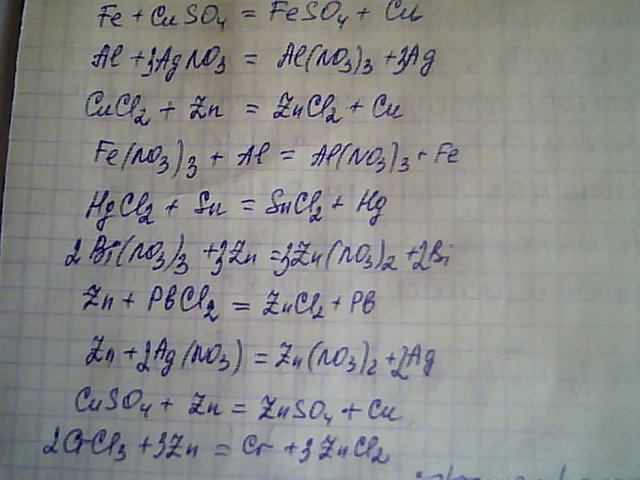 Fe + CuSO4 = FeSO4 + Cu
Al + 3AgNO3 = Al(NO3)3 + 3Ag
CuCl2 + Zn = ZnCl2 + Cu
Fe(NO3)3 + Al = Al(NO3)3 + Fe
HgCl2 + Sn = SnCl2 + Hg
2Bi(NO3)3 + 3Zn = 3Zn(NO3)2 + 2Bi
Zn + PbCl2 = ZnCl2 + Pb
Zn + 2Ag(NO3) = Zn(NO3)2 + 2Ag
CuSO4 + Zn = ZnSO4 + Cu
2CrCl3 + 3Zn = Cr + 3ZnCl2